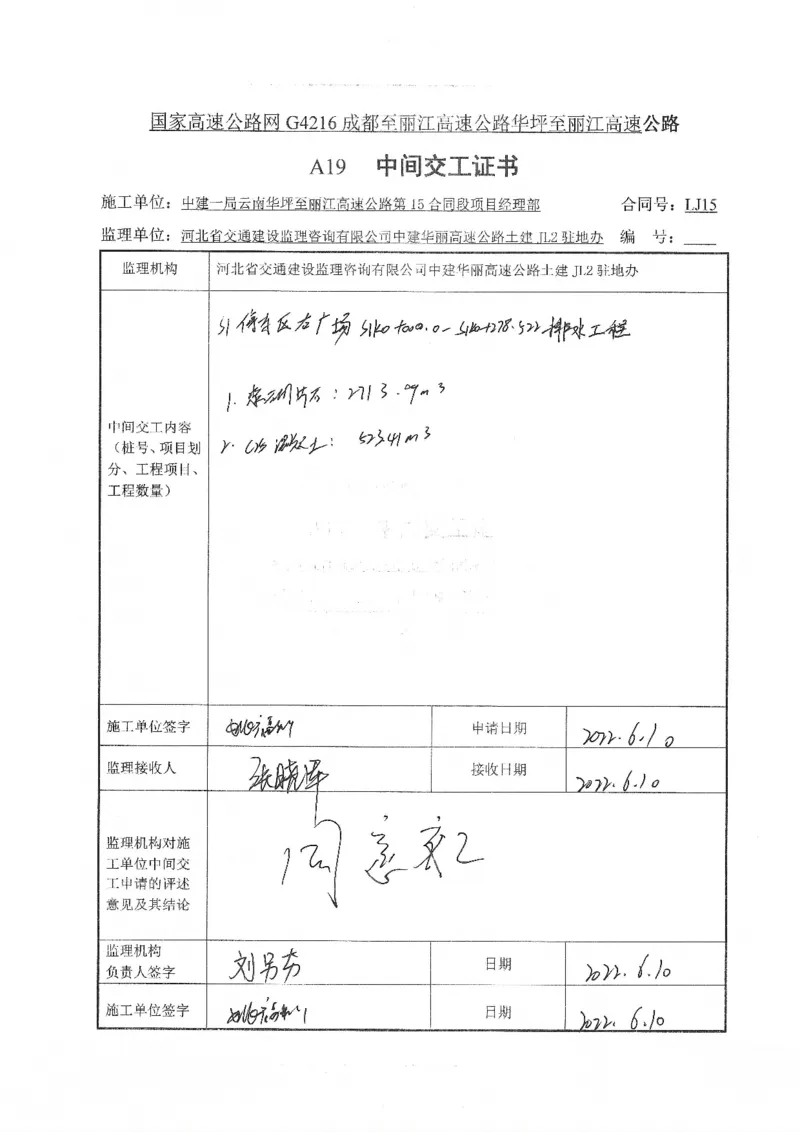 国家高速公路网 G4216 成都至丽江高速公路华坪至丽江高速公路
A19 中间交工证书
施工单位：中建一局云南华坪至丽江高速公路第 15 合同段项目经理部 合同号：LJ15
监理单位：河北省交通建设监理咨询有限公司中建华丽高速公路土建 JL2 驻地办 编 号：
监理机构 河北省交通建设监理咨询有限公司中建华丽高速公路土建 JL2 驻地办
S1停车区右广场 S1K0+000.0-S1K0+278.522排水工程
1. 片石：2713.09m3
2. C15混凝土：523.41m3
中间交工内容
（桩号、项目划
分、工程项目、
工程数量）
施工单位签字 申请日期 2022.6.10
监理接收人 张晓泽 接收日期 2022.6.10
监理机构对施
工单位中间交
工申请的评述
意见及其结论
同意交工
监理机构
负责人签字 日期 2022.6.10
施工单位签字 日期 2022.6.10